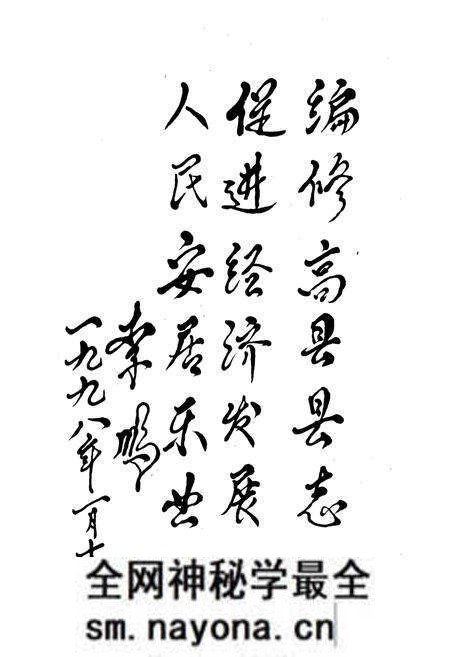 编修高县县志
促进经济发展
人民安居乐业
李鹏
一九九八年一月十
全网神秘学最全
sm.nayona.cn